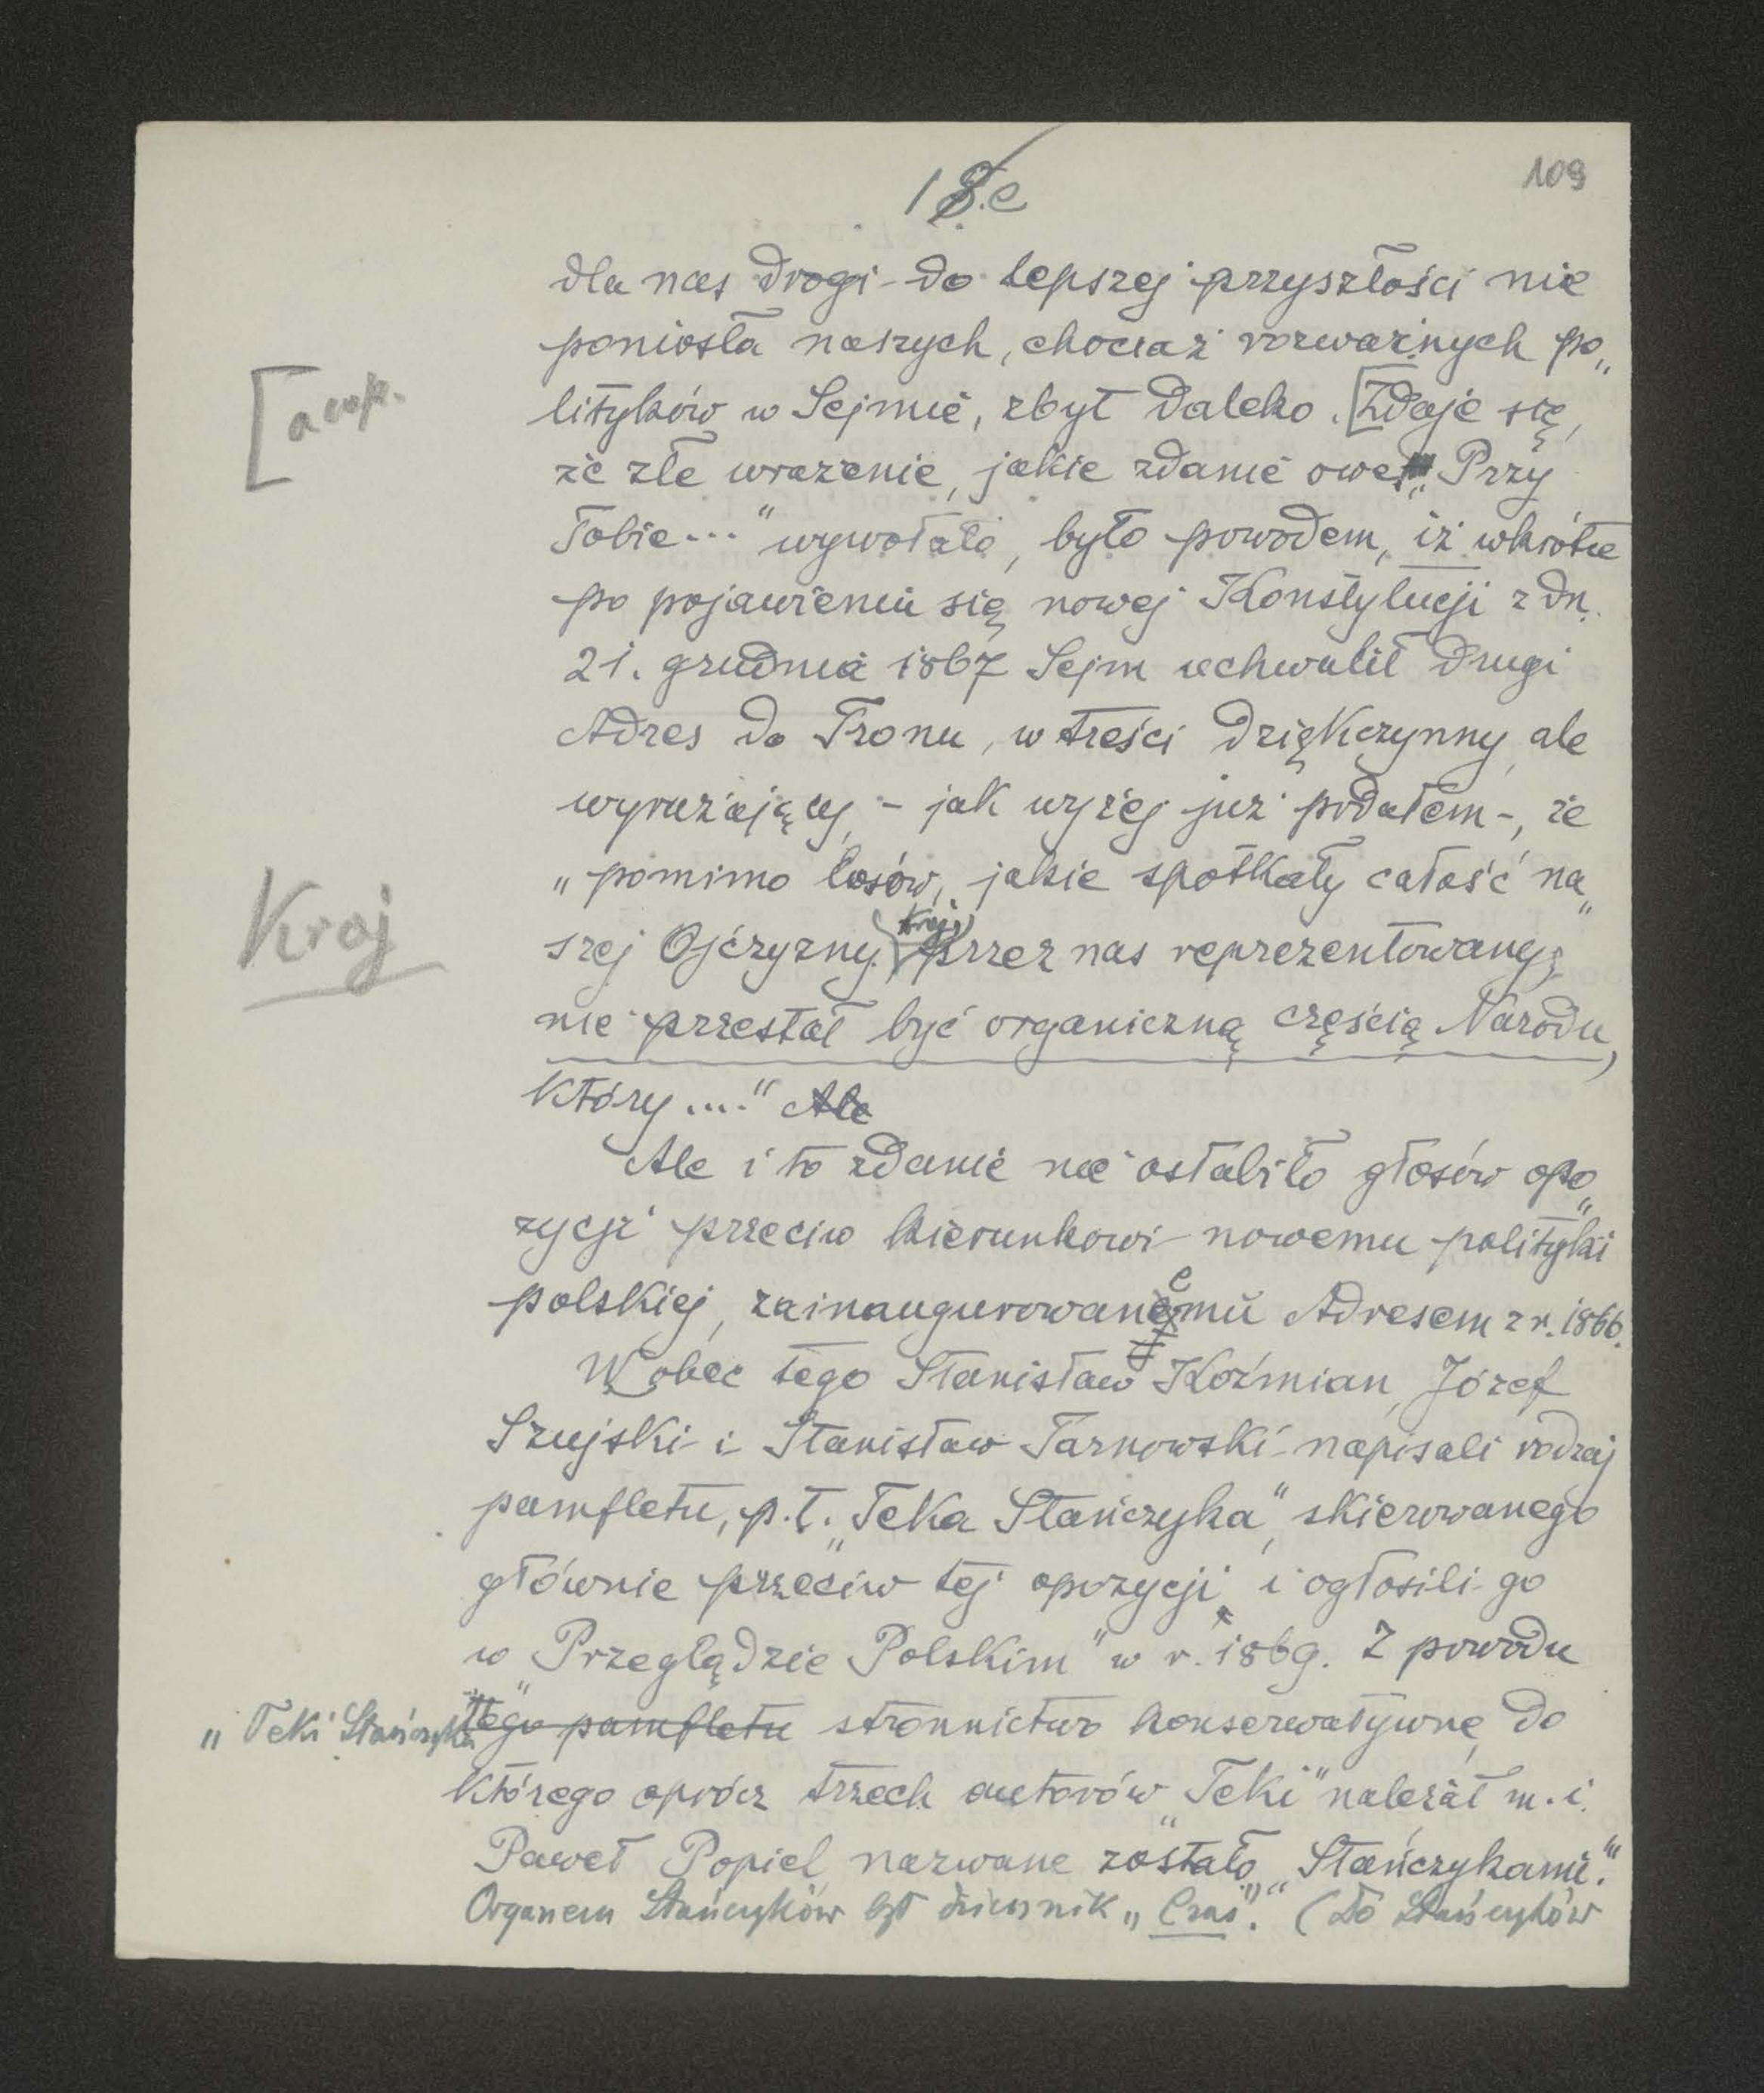 109
18.e
dla nas drogi do lepszej przyszłości nie
poniosła naszych, chociaż rozważnych po„
lityków w Sejmie, zbyt daleko. [Zdaje się,
[a cap.
że złe wrażenie, jakie zdanie owe „Przy
Tobie..." wywołało, było powodem, iż wkrótce
po pojawieniu się nowej Konstytucji z dn.
21. grudnia 1867 Sejm uchwalił drugi
Adres do Tronu, w treści dziękczynny, ale
wyrażający, - jak wyżej już podałem -, że
„pomimo losów, jakie spotkały całość na„
szej Ojczyzny, (Kraj) przez nas reprezentowany,
Kraj
nie przestał być organiczną częścią Narodu,
który...." Ale
Ale i to zdanie nie osłabiło głosów opo„
zycji przeciw kierunkowi nowemu polityki
polskiej, zainaugurowanemu Adresem z r. 1866.
Wobec tego Stanisław Koźmian, Józef
Szujski i Stanisław Tarnowski napisali rodzaj
pamfletu, p.t. „Teka Stańczyka", skierowanego
głównie przeciw tej opozycji, i ogłosili go
w „Przeglądzie Polskim" w r. 1869. Z powodu
„Teki Stańczyka" tego pamfletu stronnictwo konserwatywne, do
którego oprócz trzech autorów „Teki" należał m. i.
Paweł Popiel, nazwane zostało „Stańczykami".
Organem Stańczyków był dziennik „Czas". (Do Stańczyków